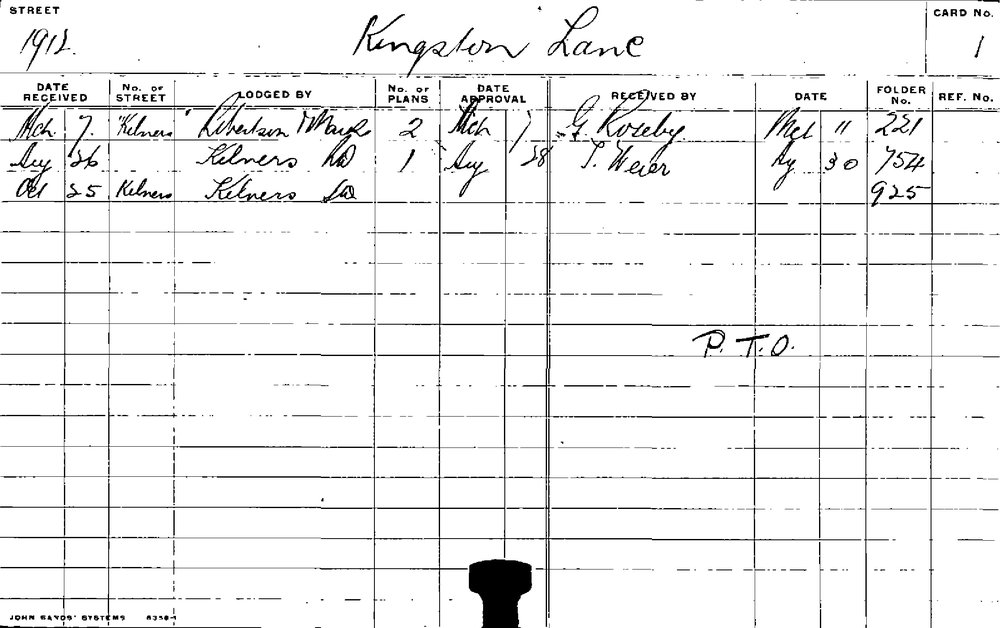 STREET
CARD No.
1912. Kingston Lane 1
DATE RECEIVED No. OF STREET LODGED BY No. OF PLANS DATE APPROVAL RECEIVED BY DATE FOLDER No. REF. No.
Mch. 7. "Kelners" Robertson & Marks 2 Mch 7 G Roseby Mch 11 221
Aug 26 Kelners Ld 1 Aug 28 T. Weier Ag 30 754
Oct 25 Kelners Kelners Ld 925
P.T.O.
JOHN SANDS' SYSTEMS